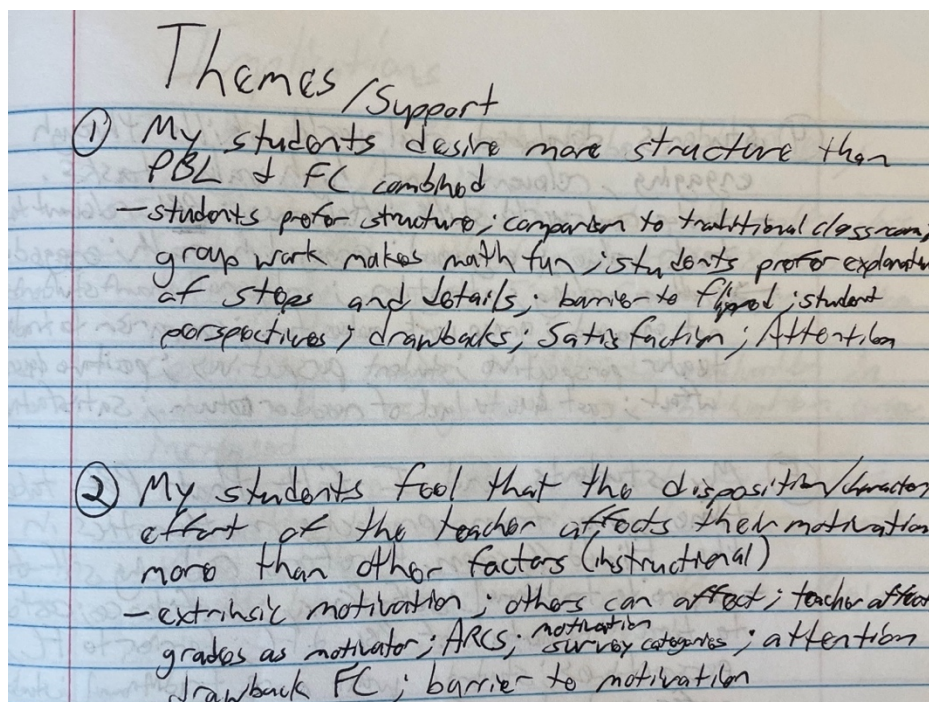 Themes/Support
① My students desire more structure than
PBL & FC combined
- students prefer structure; comparison to traditional classroom;
group work makes math fun; students prefer explanation
of steps and details; barrier to flipped; student
perspectives; drawbacks; Satisfaction; Attention
② My students feel that the disposition/character
effort of the teacher affects their motivation
more than other factors (instructional)
- extrinsic motivation; others can affect; teacher affect
grades as motivator; ARCS; motivation survey categories; attention
drawback FC; barrier to motivation